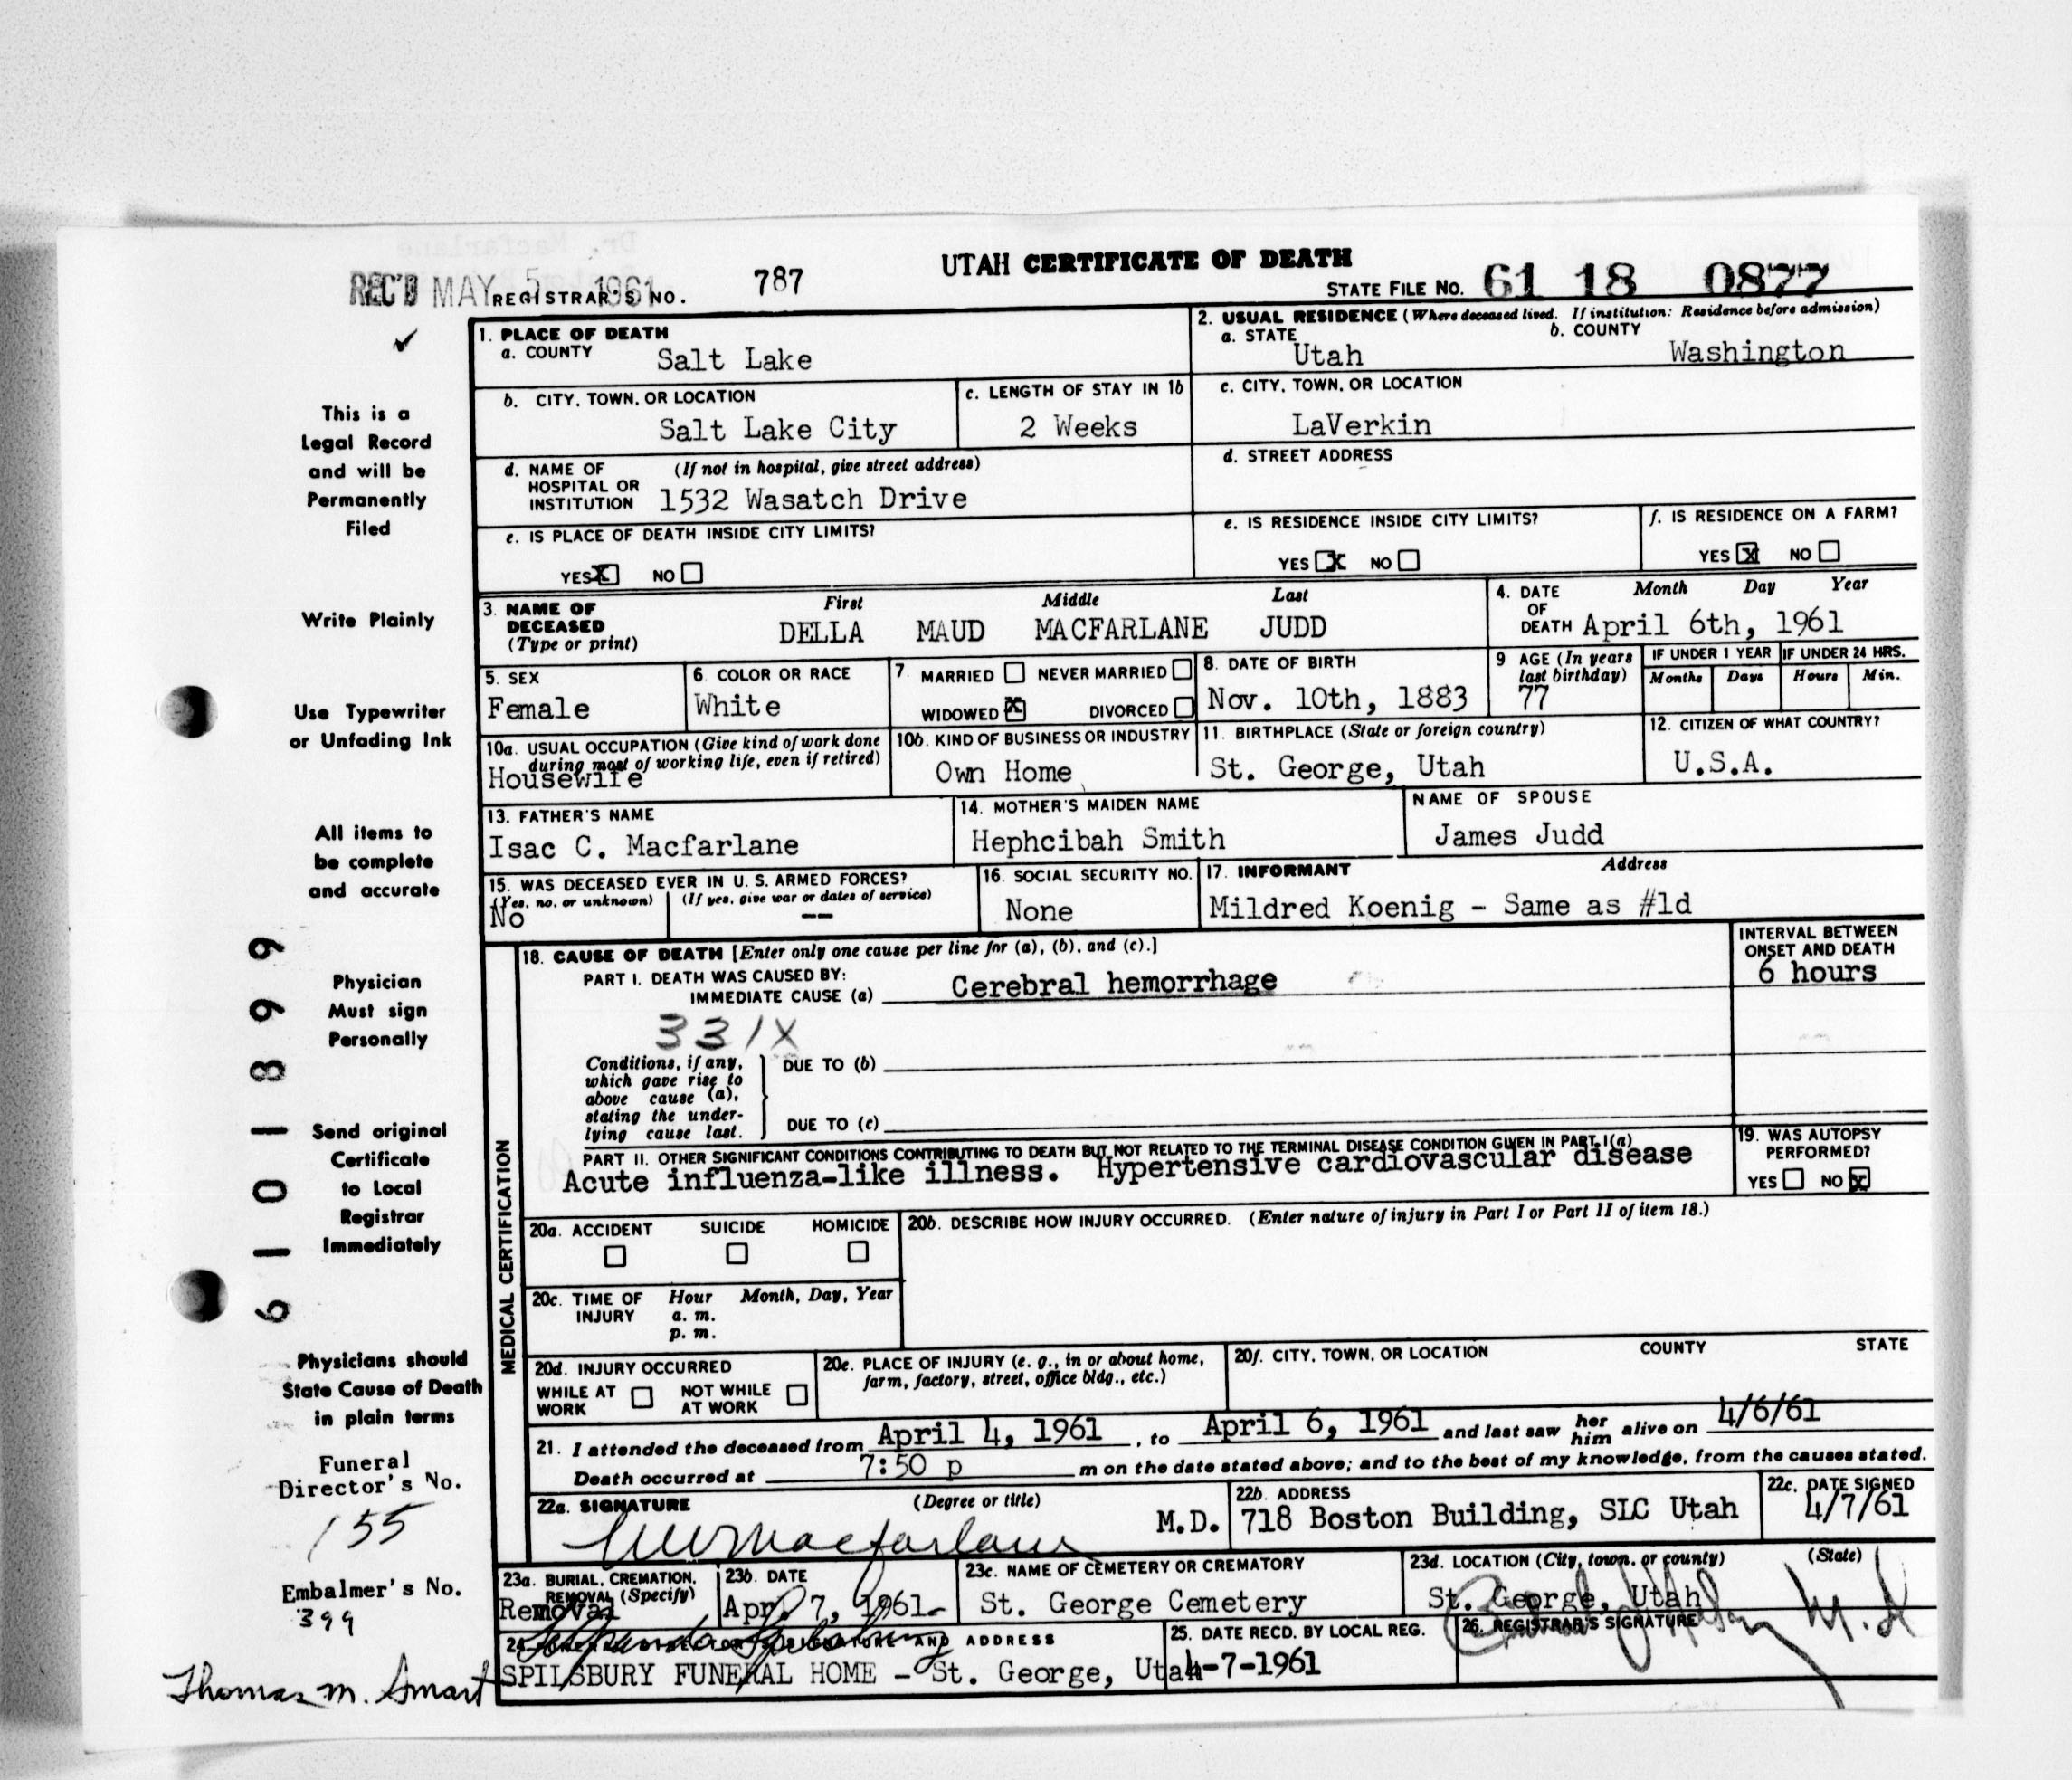 UTAH CERTIFICATE OF DEATH
REC'D MAY 5 1961 REGISTRAR'S NO. 787
STATE FILE NO. 61 18 0877
1. PLACE OF DEATH
a. COUNTY Salt Lake
2. USUAL RESIDENCE (Where deceased lived. If institution: Residence before admission)
a. STATE Utah b. COUNTY Washington
b. CITY, TOWN, OR LOCATION Salt Lake City
c. LENGTH OF STAY IN 1b 2 Weeks
c. CITY, TOWN, OR LOCATION LaVerkin
d. NAME OF HOSPITAL OR INSTITUTION (If not in hospital, give street address) 1532 Wasatch Drive
d. STREET ADDRESS
e. IS PLACE OF DEATH INSIDE CITY LIMITS?
YES X NO
e. IS RESIDENCE INSIDE CITY LIMITS?
YES X NO
f. IS RESIDENCE ON A FARM?
YES X NO
3. NAME OF DECEASED (Type or print)
First Middle Last
DELLA MAUD MACFARLANE JUDD
4. DATE OF DEATH Month Day Year
April 6th, 1961
5. SEX Female
6. COLOR OR RACE White
7. MARRIED NEVER MARRIED
WIDOWED X DIVORCED
8. DATE OF BIRTH Nov. 10th, 1883
9 AGE (In years last birthday) 77
IF UNDER 1 YEAR Months Days
IF UNDER 24 HRS. Hours Min.
10a. USUAL OCCUPATION (Give kind of work done during most of working life, even if retired)
Housewife
10b. KIND OF BUSINESS OR INDUSTRY
Own Home
11. BIRTHPLACE (State or foreign country)
St. George, Utah
12. CITIZEN OF WHAT COUNTRY?
U.S.A.
13. FATHER'S NAME
Isac C. Macfarlane
14. MOTHER'S MAIDEN NAME
Hephcibah Smith
NAME OF SPOUSE
James Judd
15. WAS DECEASED EVER IN U. S. ARMED FORCES?
(Yes, no, or unknown) (If yes, give war or dates of service)
No --
16. SOCIAL SECURITY NO.
None
17. INFORMANT Address
Mildred Koenig - Same as #1d
MEDICAL CERTIFICATION
18. CAUSE OF DEATH [Enter only one cause per line for (a), (b), and (c).]
INTERVAL BETWEEN ONSET AND DEATH
PART I. DEATH WAS CAUSED BY:
IMMEDIATE CAUSE (a) Cerebral hemorrhage
6 hours
331X
Conditions, if any, which gave rise to above cause (a), stating the underlying cause last.
DUE TO (b)
DUE TO (c)
PART II. OTHER SIGNIFICANT CONDITIONS CONTRIBUTING TO DEATH BUT NOT RELATED TO THE TERMINAL DISEASE CONDITION GIVEN IN PART I(a)
Acute influenza-like illness. Hypertensive cardiovascular disease
19. WAS AUTOPSY PERFORMED?
YES NO X
20a. ACCIDENT SUICIDE HOMICIDE
20b. DESCRIBE HOW INJURY OCCURRED. (Enter nature of injury in Part I or Part II of item 18.)
20c. TIME OF INJURY Hour Month, Day, Year
a. m.
p. m.
20d. INJURY OCCURRED
WHILE AT WORK NOT WHILE AT WORK
20e. PLACE OF INJURY (e. g., in or about home, farm, factory, street, office bldg., etc.)
20f. CITY, TOWN, OR LOCATION COUNTY STATE
21. I attended the deceased from April 4, 1961, to April 6, 1961 and last saw her him alive on 4/6/61
Death occurred at 7:50 p m on the date stated above; and to the best of my knowledge, from the causes stated.
22a. SIGNATURE (Degree or title)
Macfarlane M.D.
22b. ADDRESS
718 Boston Building, SLC Utah
22c. DATE SIGNED
4/7/61
23a. BURIAL, CREMATION, REMOVAL (Specify)
Removal
23b. DATE
Apr. 7, 1961
23c. NAME OF CEMETERY OR CREMATORY
St. George Cemetery
23d. LOCATION (City, town, or county) (State)
St. George, Utah
24. AND ADDRESS
SPILSBURY FUNERAL HOME - St. George, Utah
25. DATE RECD. BY LOCAL REG.
4-7-1961
26. REGISTRAR'S SIGNATURE
M.D.
This is a
Legal Record
and will be
Permanently
Filed
Write Plainly
Use Typewriter
or Unfading Ink
All items to
be complete
and accurate
Physician
Must sign
Personally
Send original
Certificate
to Local
Registrar
Immediately
Physicians should
State Cause of Death
in plain terms
Funeral
Director's No.
155
Embalmer's No.
399
Thomas M. Smart
61018999